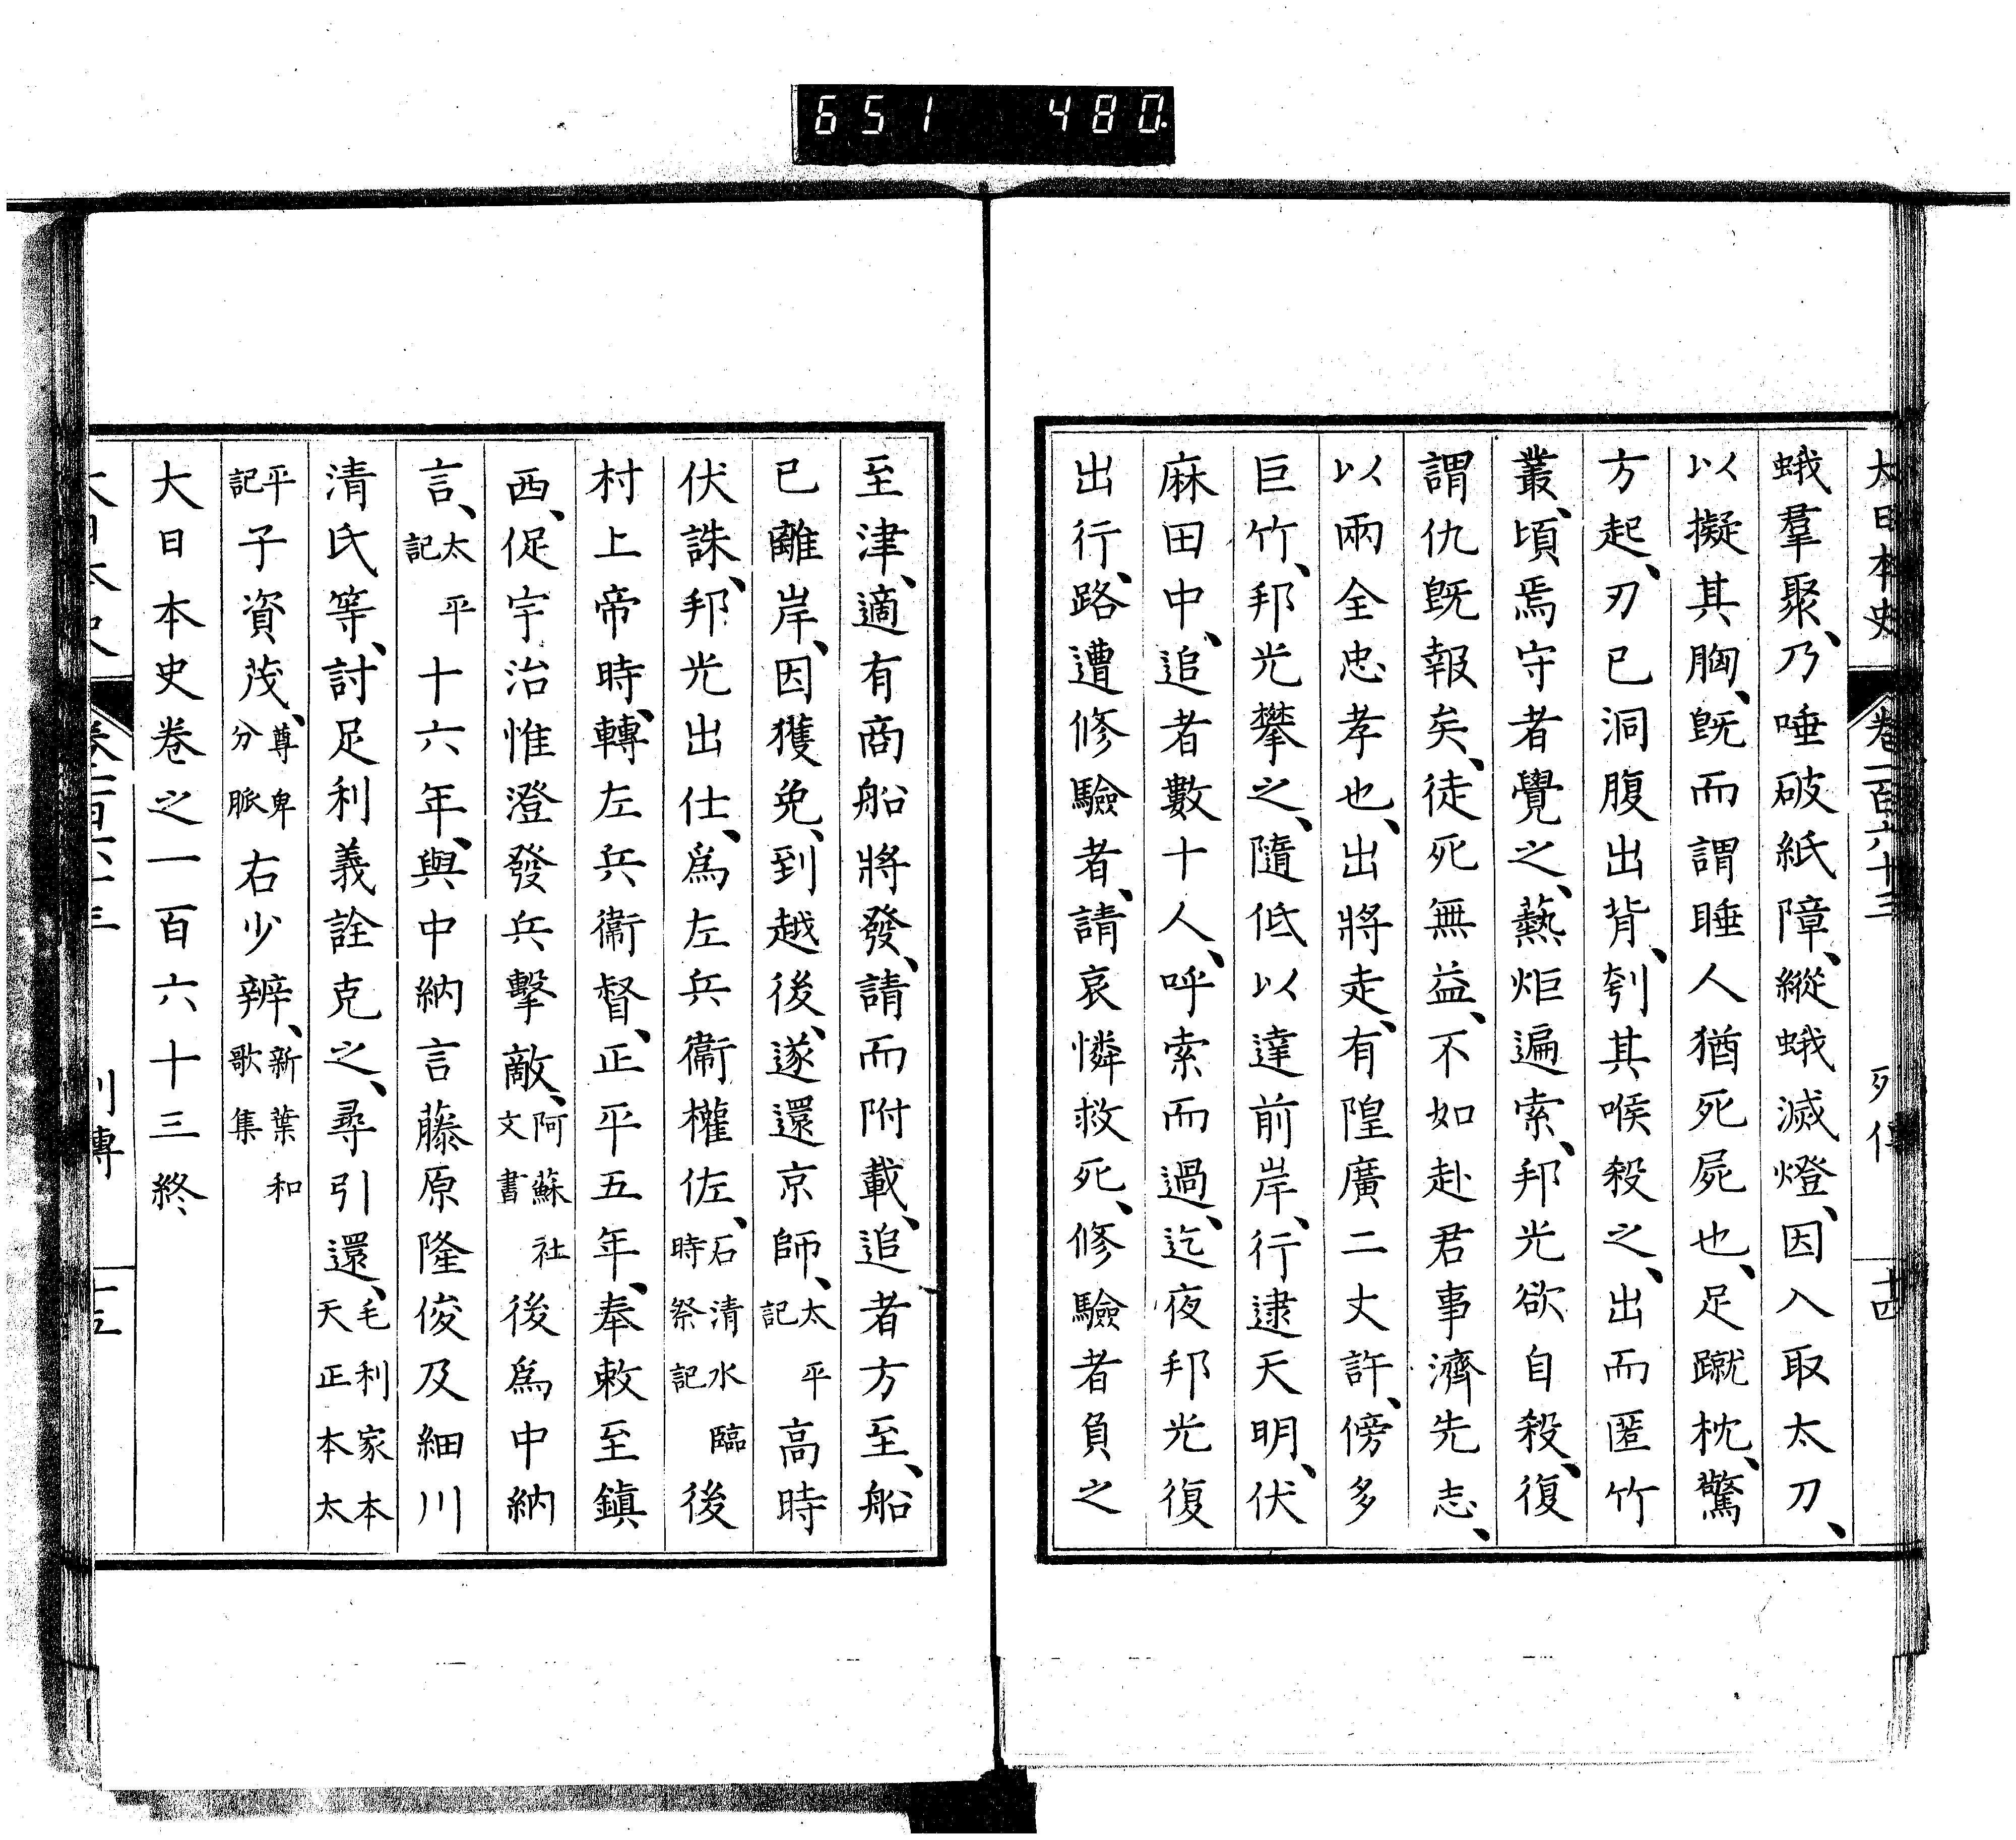 651 480
大日本史 卷一百六十三 列傳 十四
蛾羣聚、乃唾破紙障、縱蛾滅燈、因入取太刀、
以擬其胸、既而謂睡人猶死屍也、足蹴枕、驚
方起、刃已洞腹出背、刳其喉殺之、出而匿竹
叢、頃焉守者覺之、爇炬遍索、邦光欲自殺、復
謂仇既報矣、徒死無益、不如赴君事濟先志、
以兩全忠孝也、出將走、有隍廣二丈許、傍多
巨竹、邦光攀之、隨低以達前岸、行逮天明、伏
麻田中、追者數十人、呼索而過、迄夜邦光復
出行、路遭修驗者、請哀憐救死、修驗者負之
至津、適有商船將發、請而附載、追者方至、船
已離岸、因獲免、到越後、遂還京師、太平記高時
伏誅、邦光出仕、爲左兵衞權佐、石清水臨時祭記後
村上帝時、轉左兵衞督、正平五年、奉敕至鎭
西、促宇治惟澄發兵擊敵、阿蘇社文書後爲中納
言、太平記十六年、與中納言藤原隆俊及細川
清氏等、討足利義詮克之、尋引還、毛利家本天正本太
平記子資茂、尊卑分脈右少辨、新葉和歌集
大日本史卷之一百六十三終
大日本史 卷一百六十三 列傳 十五